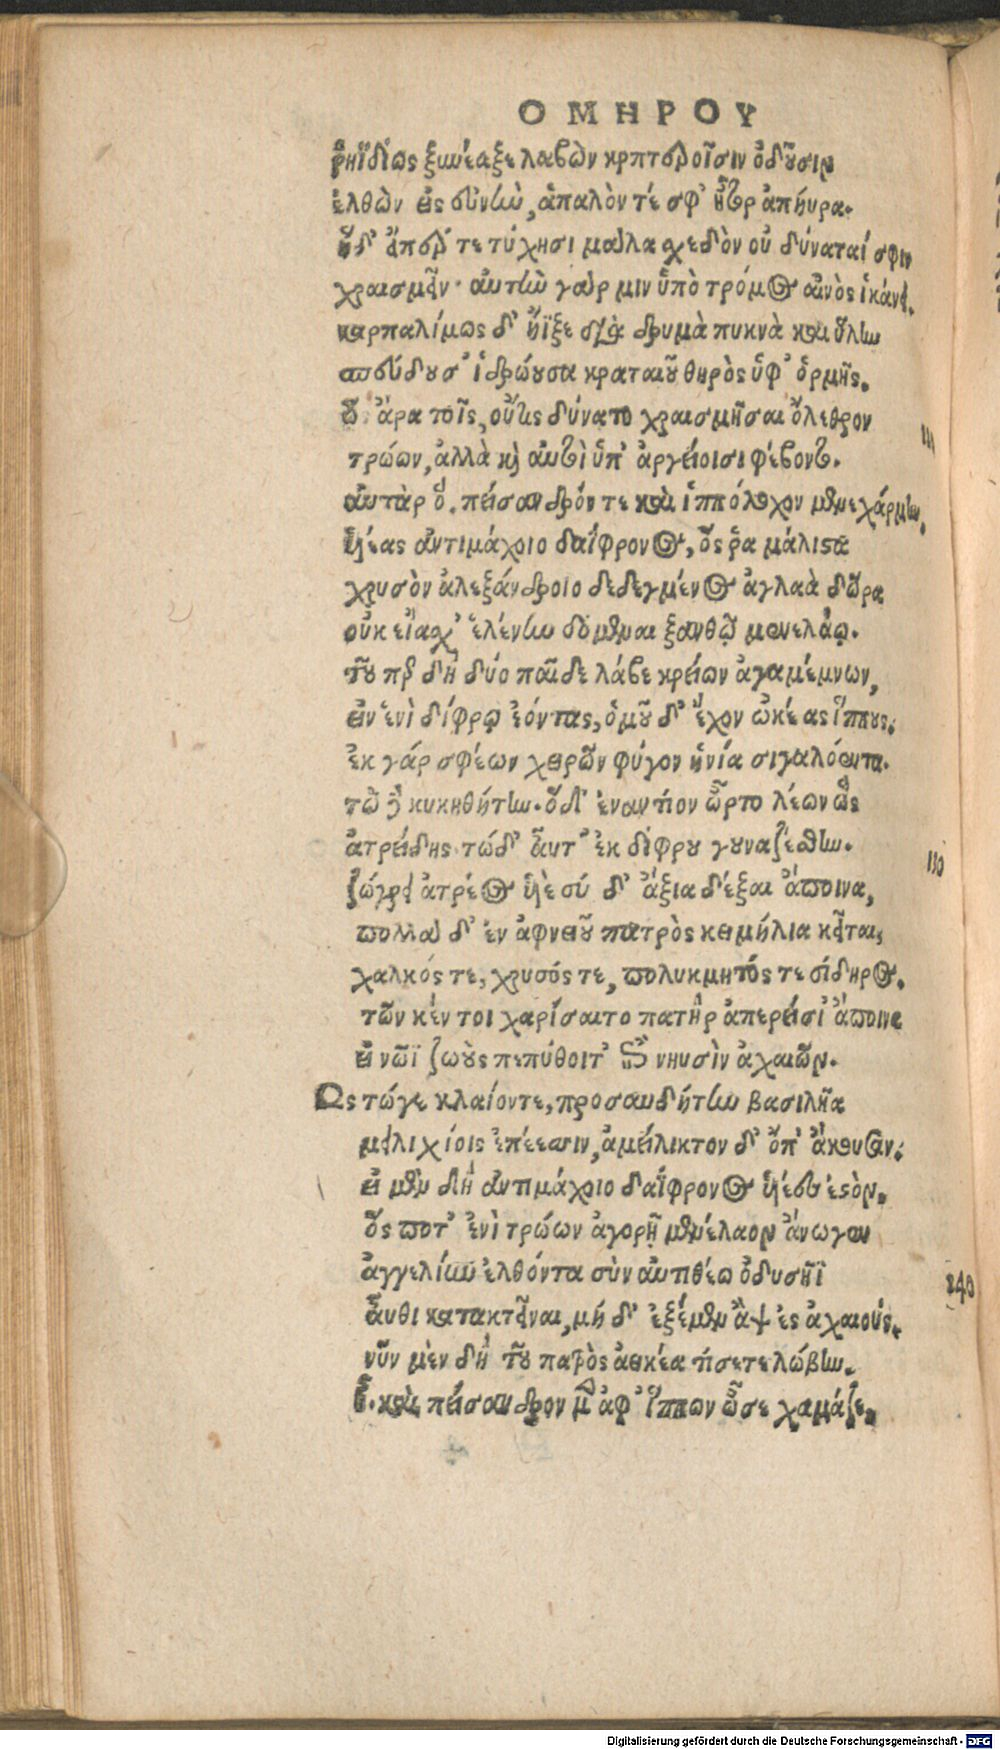 ΟΜΗΡΟΥ
ῥηϊδίως ξυνέαξε λαβὼν κρατεροῖσιν ὀδοῦσιν
ἐλθὼν εἰς εὐνὴν, ἁπαλὸν τέ σφ' ἦτορ ἀπηύρα.
ἡ δ' εἴπερ τε τύχησι μάλα σχεδὸν οὐ δύναταί σφιν
χραισμεῖν· αὐτὴν γάρ μιν ὑπὸ τρόμος αἰνὸς ἱκάνει.
καρπαλίμως δ' ἤϊξε διὰ δρυμὰ πυκνὰ καὶ ὕλην
σπεύδουσ' ἱδρώουσα κραταιοῦ θηρὸς ὑφ' ὁρμῆς.
ὣς ἄρα τοῖς, οὔτις δύνατο χραισμῆσαι ὄλεθρον
τρώων, ἀλλὰ καὶ αὐτοὶ ὑπ' ἀργείοισι φέβοντο.
αὐτὰρ ὁ. πείσανδρόν τε καὶ ἱππόλοχον μενεχάρμην,
υἱέας ἀντιμάχοιο δαΐφρονος, ὅς ῥα μάλιστα
χρυσὸν ἀλεξάνδροιο δεδεγμένος ἀγλαὰ δῶρα
οὐκ εἴασχ' ἑλένην δόμεναι ξανθῷ μενελάῳ.
τοῦ περ δὴ δύο παῖδε λάβε κρείων ἀγαμέμνων,
ἐν ἑνὶ δίφρῳ ἐόντας, ὁμοῦ δ' ἔχον ὠκέας ἵππους.
ἐκ γάρ σφέων χειρῶν φύγον ἡνία σιγαλόεντα.
τὼ δὲ κυκηθήτην. ὁ δ' ἐναντίον ὦρτο λέων ὣς
ἀτρείδης τώδ' αὖτ' ἐκ δίφρου γουναζέσθην.
ζώγρει ἀτρέος υἱὲ σύ δ' ἄξια δέξαι ἄποινα,
πολλὰ δ' ἐν ἀφνειοῦ πατρὸς κειμήλια κεῖται,
χαλκός τε, χρυσός τε, πολυκμητός τε σίδηρος.
τῶν κέν τοι χαρίσαιτο πατὴρ ἀπερείσι' ἄποινα
εἰ νῶϊ ζωοὺς πεπύθοιτ' ἐπὶ νηυσὶν ἀχαιῶν.
Ως τώγε κλαίοντε, προσαυδήτην βασιλῆα
μειλιχίοις ἐπέεσσιν, ἀμείλικτον δ' ὄπ' ἄκουσαν.
εἰ μὲν δὴ ἀντιμάχοιο δαΐφρονος υἱέες ἐστὸν.
ὅς ποτ' ἐνὶ τρώων ἀγορῇ μενέλαον ἄνωγεν
ἀγγελίην ἐλθόντα σὺν ἀντιθέῳ ὀδυσῆϊ
αὖθι κατακτεῖναι, μή δ' ἐξέμεν ἂψ ἐς ἀχαιούς.
νῦν μὲν δὴ τοῦ πατρὸς ἀεικέα τίσετε λώβην.
ἦ. καὶ πείσανδρον μὲν ἀφ' ἵππων ὦσε χαμάζε.
240
Digitalisierung gefördert durch die Deutsche Forschungsgemeinschaft - DFG